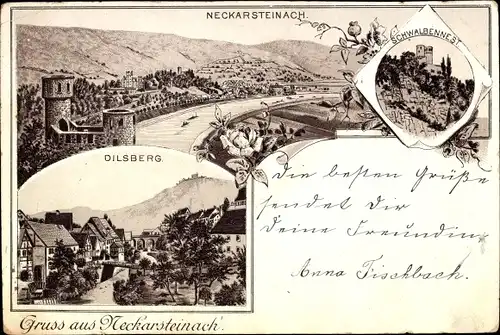 NECKARSTEINACH.
SCHWALBENNEST.
DILSBERG.
Die besten Grüße
sendet Dir
Deine Freundin
Anna Fischbach.
Gruss aus Neckarsteinach.